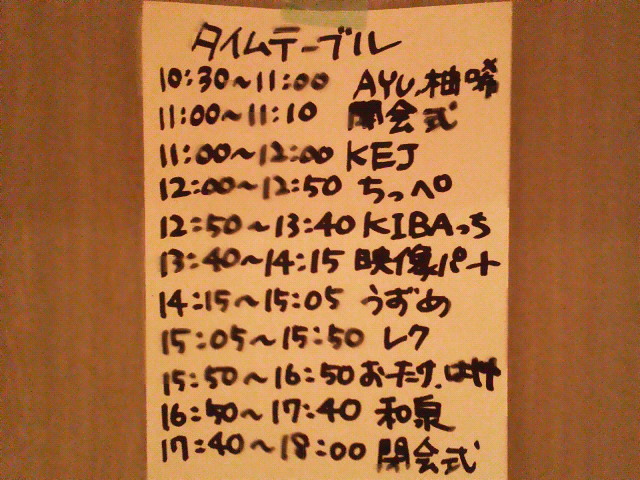 タイムテーブル
10:30~11:00 AYU.柚唏
11:00~11:10 開会式
11:00~12:00 KEJ
12:00~12:50 ちっペロ
12:50~13:40 KIBAっち
13:40~14:15 映像パート
14:15~15:05 うずめ
15:05~15:50 レク
15:50~16:50 おーたけ.
16:50~17:40 和泉
17:40~18:00 閉会式